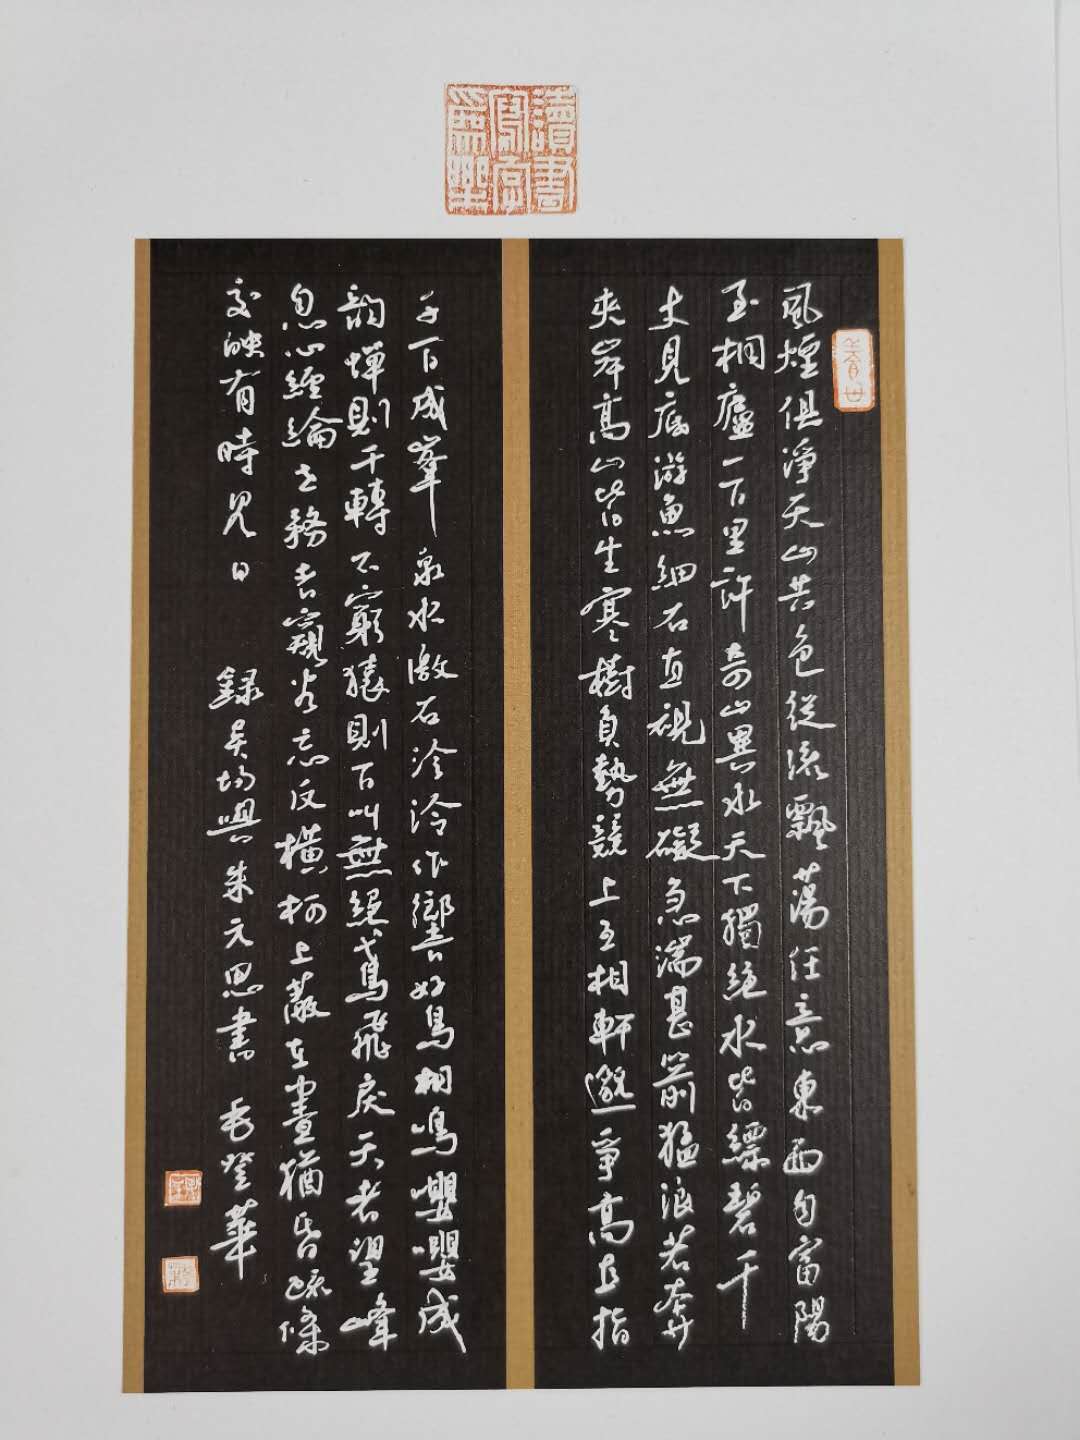 讀書寫字爲樂
風煙俱淨天山共色從流飄蕩任意東西自富陽
至桐廬一百里許奇山異水天下獨絕水皆縹碧千
丈見底游魚細石直視無礙急湍甚箭猛浪若奔
夾岸高山皆生寒樹負勢競上互相軒邈爭高直指
千百成峯泉水激石泠泠作響好鳥相鳴嚶嚶成
韻蟬則千轉不窮猿則百叫無絕鳶飛戾天者望峰
息心經綸世務者窺谷忘反橫柯上蔽在晝猶昏疏條
交映有時見日 錄吳均與朱元思書 毛登華